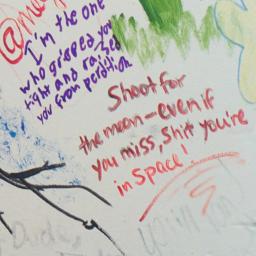 @me
I'm the one
who gripped you
tight and raised
you from perdition
Shoot for
the moon—even if
you miss, shit you're
in space!
Dude,